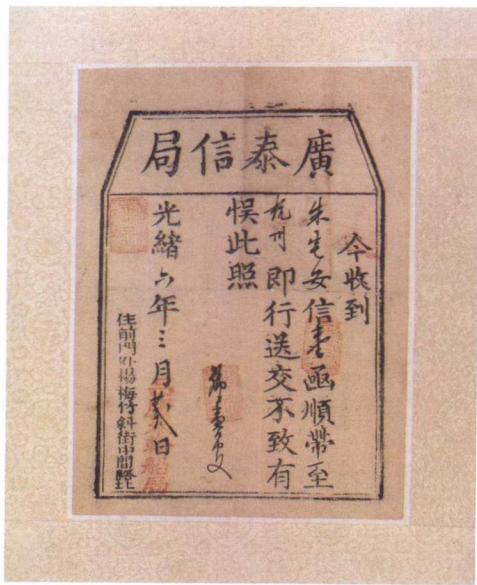 廣泰信局
今收到
朱宅安信壹函順帶至
杭州即行送交不致有
悮此照
光緒六年三月廿八日
住前門外楊梅竹斜街中間路北
船局